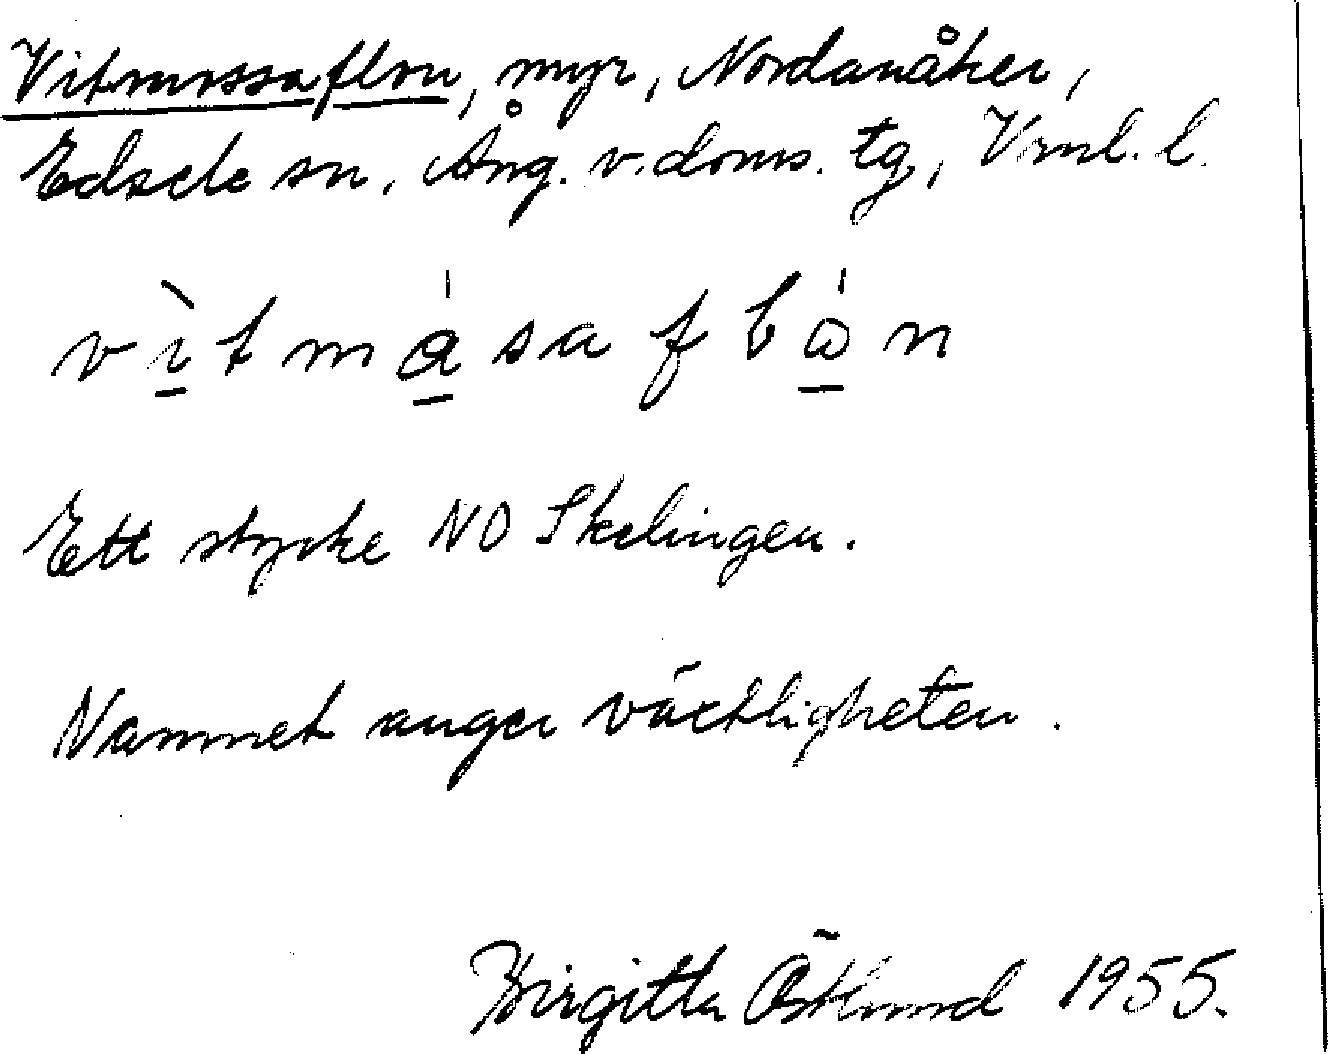 Vitmossaflon, myr, Nordanåker,
Edsele sn, Ång. v. doms. tg, Vrnl. l.
vìtmåsaflån
Ett stycke NO Skelingen.
Namnet anger växtligheten.
Birgitta Östlund 1955.